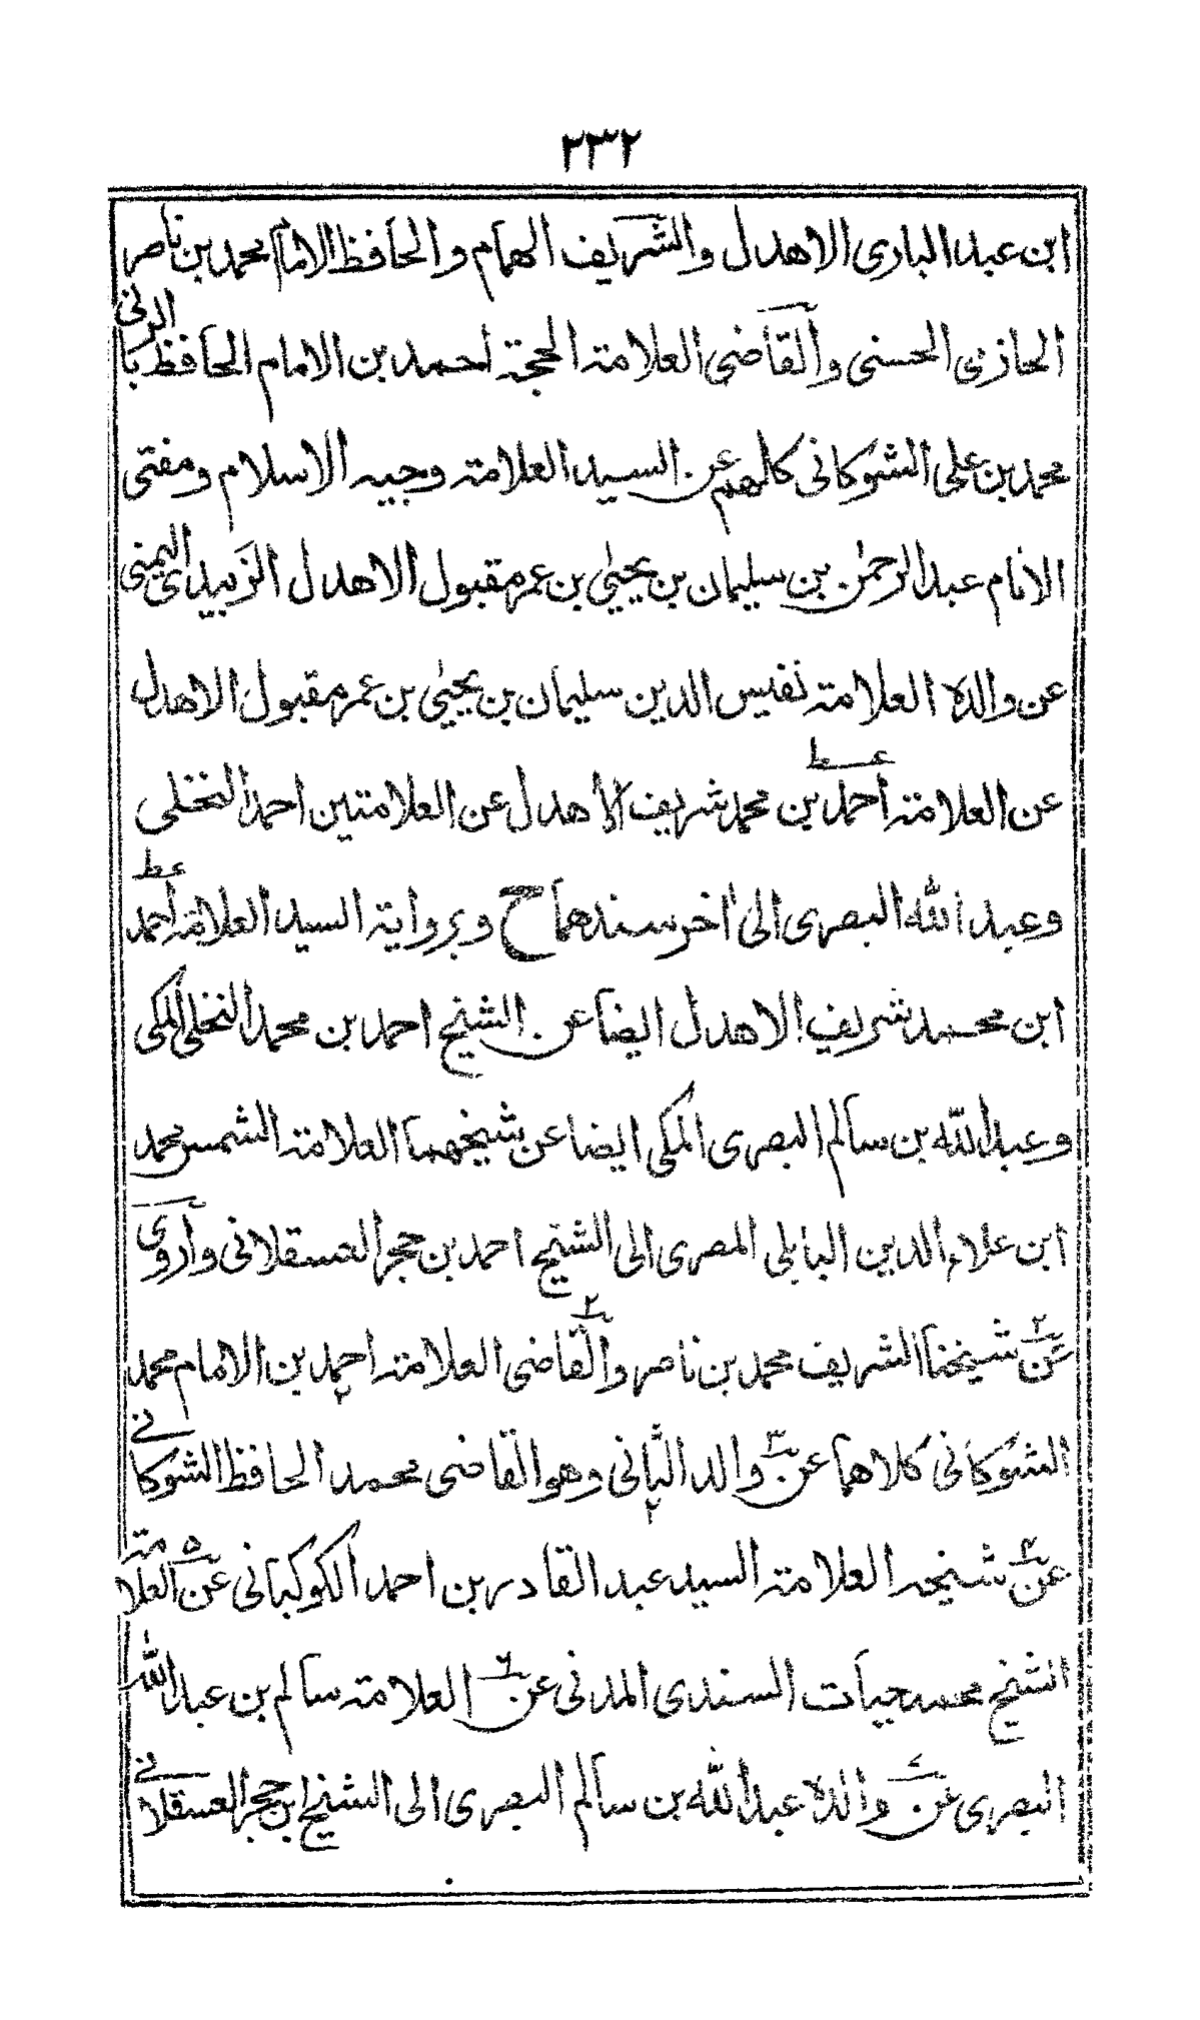 ٢٣٢
ابن عبد الباری الاهدل والشریف الهمام والحافظ الامام محمد بن ناصر
الحازمی الحسنی والقاضی العلامة الحجة احمد بن الامام الحافظ الربانی
محمد بن علی الشوکانی کلهم عن السید العلامة وجیه الاسلام ومفتی
الانام عبد الرحمٰن بن سلیمان بن یحییٰ بن عمر مقبول الاهدل الزبیدی الیمنی
عن والده العلامة نفیس الدین سلیمان بن یحییٰ بن عمر مقبول الاهدل
عن العلامة احمد بن محمد شریف الاهدل عن العلامتین احمد النخلی
وعبد الله البصری الیٰ اٰخر سندهما ح وبروایة السید العلامة احمد
ابن محمد شریف الاهدل ایضا عن الشیخ احمد بن محمد النخلی المکی
وعبد الله بن سالم البصری المکی ایضا عن شیخهما العلامة الشمس محمد
ابن علاء الدین البابلی المصری الی الشیخ احمد بن حجر العسقلانی وأروی
عن شیخنا الشریف محمد بن ناصر والقاضی العلامة احمد بن الامام محمد
الشوکانی کلاهما عن والد الثانی وهو القاضی محمد الحافظ الشوکانی
عن شیخه العلامة السید عبد القادر بن احمد الکوکبانی عن العلامة
الشیخ محمد حیات السندی المدنی عن العلامة سالم بن عبد الله
البصری عن والده عبد الله بن سالم البصری الی الشیخ ابن حجر العسقلانی